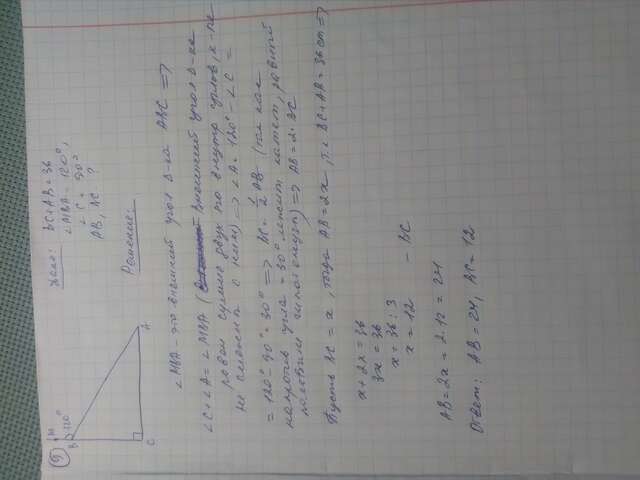 9)
M
B
120°
C
A
Дано: BC+AB=36
∠MBA=120°,
∠C=90°
AB, BC ?
Решение:
∠MBA - это внешний угол Δ-ка ABC =>
∠C+∠A=∠MBA ( внешний угол Δ-ка
равен сумме двух его внутр углов, х-рые
не смежны с ним) => ∠A=120°-∠C=
=120°-90°=30° => BC=1/2 AB (так как
напротив угла =30° лежит катет, равный
половине гипотенузы) => AB=2·BC
Пусть BC=x, тогда AB=2x, т.к BC+AB=36 cm =>
x+2x=36
3x=36
x=36:3
x=12 - BC
AB=2x=2·12=24
Ответ: AB=24, BC=12